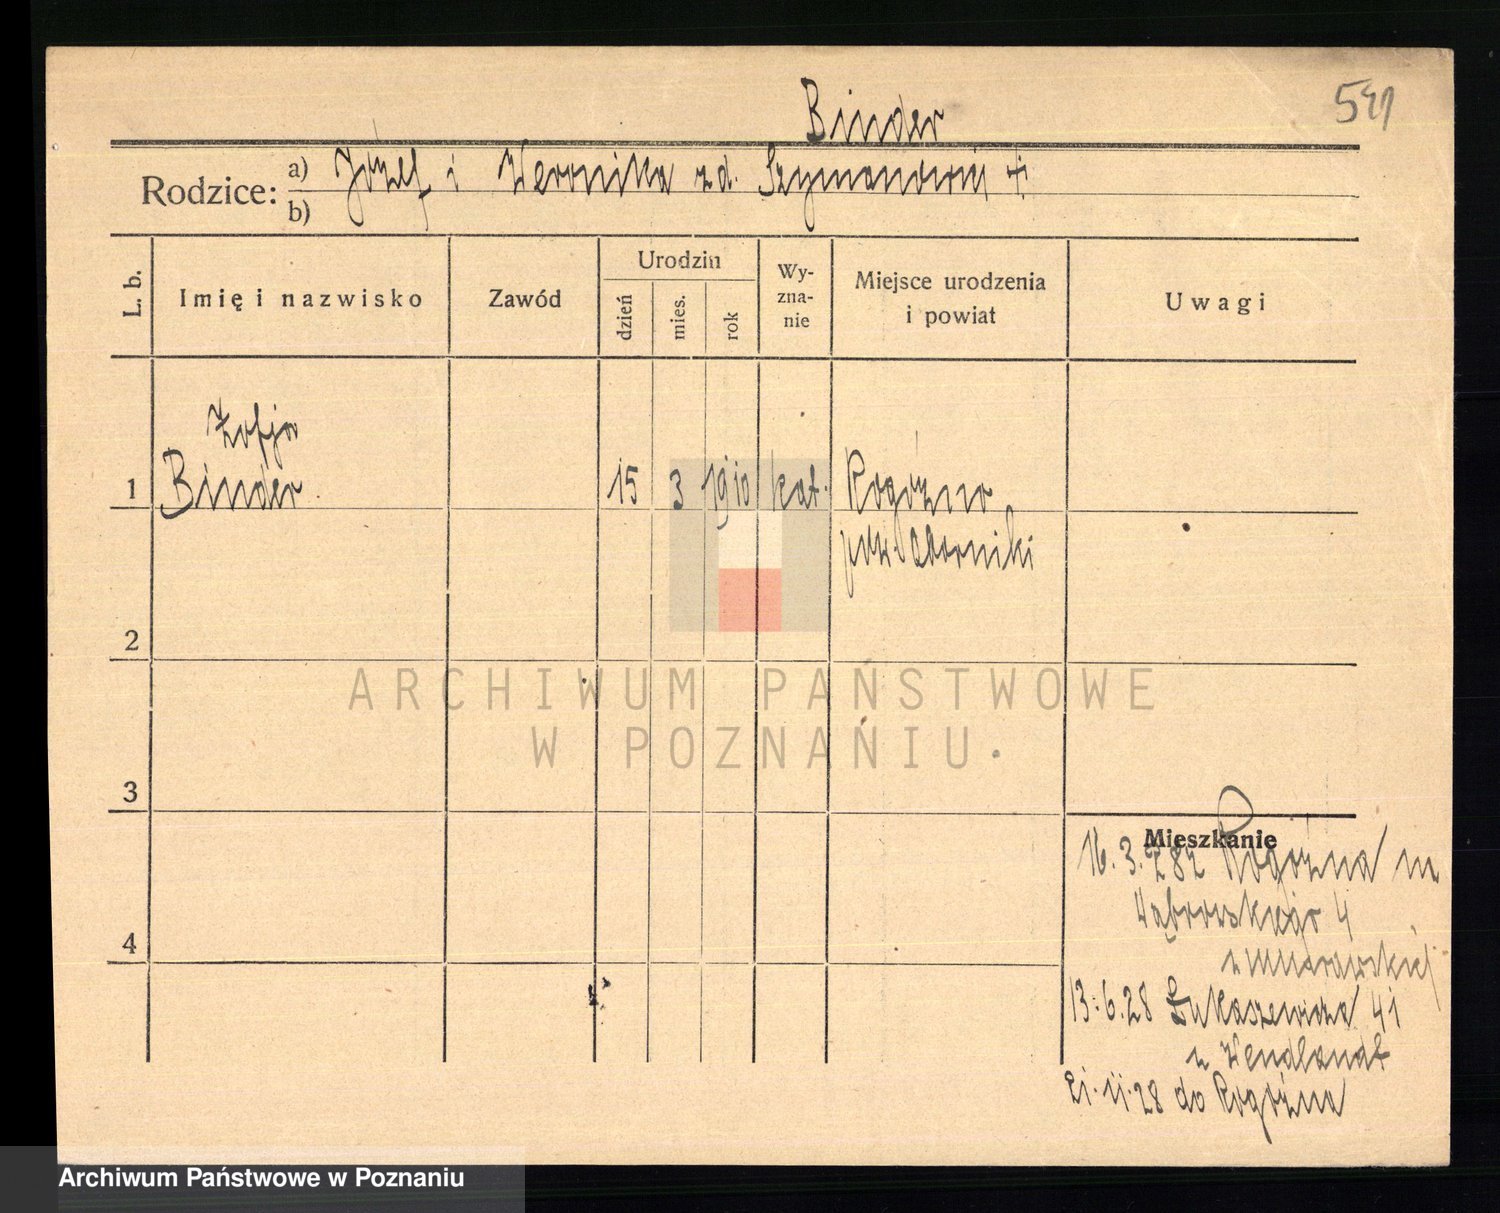 Binder
541
Rodzice: a) Józef i Weronika zd. Szymanowicz +
b)
L. b.
Imię i nazwisko
Zawód
Urodzin
dzień
mies.
rok
Wy-
zna-
nie
Miejsce urodzenia
i powiat
Uwagi
Zofja
1 Binder 15 3 1910 kat. Rogoźno
pow. Oborniki
2
ARCHIWUM PAŃSTWOWE
W POZNANIU
3
Mieszkanie
16. 3. 28 z Rogoźna
Dąbrowskiego 4
4
13.6.28 Łukaszewicza 41
u Wendlandt
21.11.28 do Rogoźna
Archiwum Państwowe w Poznaniu